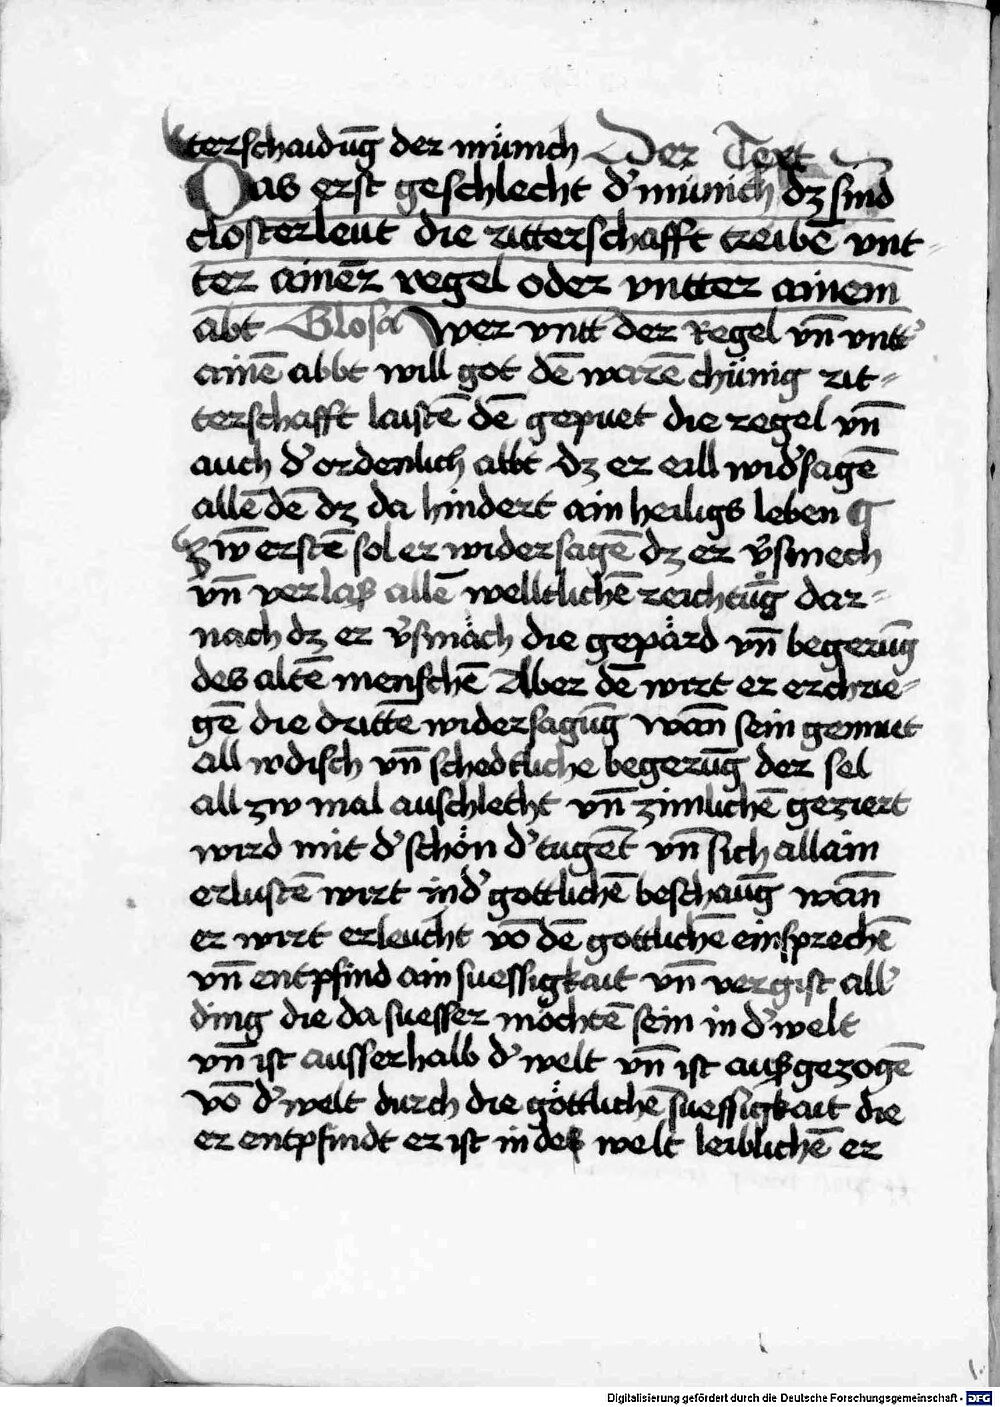 terschaidūg der mu̇nich Der Text
Das erst geschlecht d' mu̇nich dz sind
closterleut die ritterschafft treibē vnt-
ter ainer regel oder vntter ainem
abt Glosa Wer vntt der Regel vn̄ vntt'
ainē abbt will got dē warē chu̇nig rit-
terschafft laistē dē gepuet die regel vn̄
auch d' ordenlich abbt dz er eall wid'sagē
allē dē dz da hindert ain heiligs leben ¶
Zw̄ erstē sol er widersagē dz er v'smech
vn̄ verlaß allē welltlichē reichtūg dar-
nach dz er v'smäch die gepärd vn̄ begerūg
des altē menschē Aber dē wirt er erchrie-
gē die drittē widersagūg wan̄ sein gemuet
all irdisch vn̄ schedtliche begerūg der sel
all zw mal auschlecht vn̄ zimlichē geziert
wird mit d' schön d' tugēt vn̄ sich allain
erlustē wirt in d' gottlichē beschaūg wan̄
er wirt erleucht vō dē gottlichē einsprechē
vn̄ entpfind ain suessigkait vn̄ vergist all'
ding die da suesser möchtē sein in d' welt
vn̄ ist ausserhalb d' welt vn̄ ist außgezogē
vō d' welt durch die göttlichē suessigkait die
er entpfindt er ist in deß welt leiblichē er
Digitalisierung gefördert durch die Deutsche Forschungsgemeinschaft - DFG